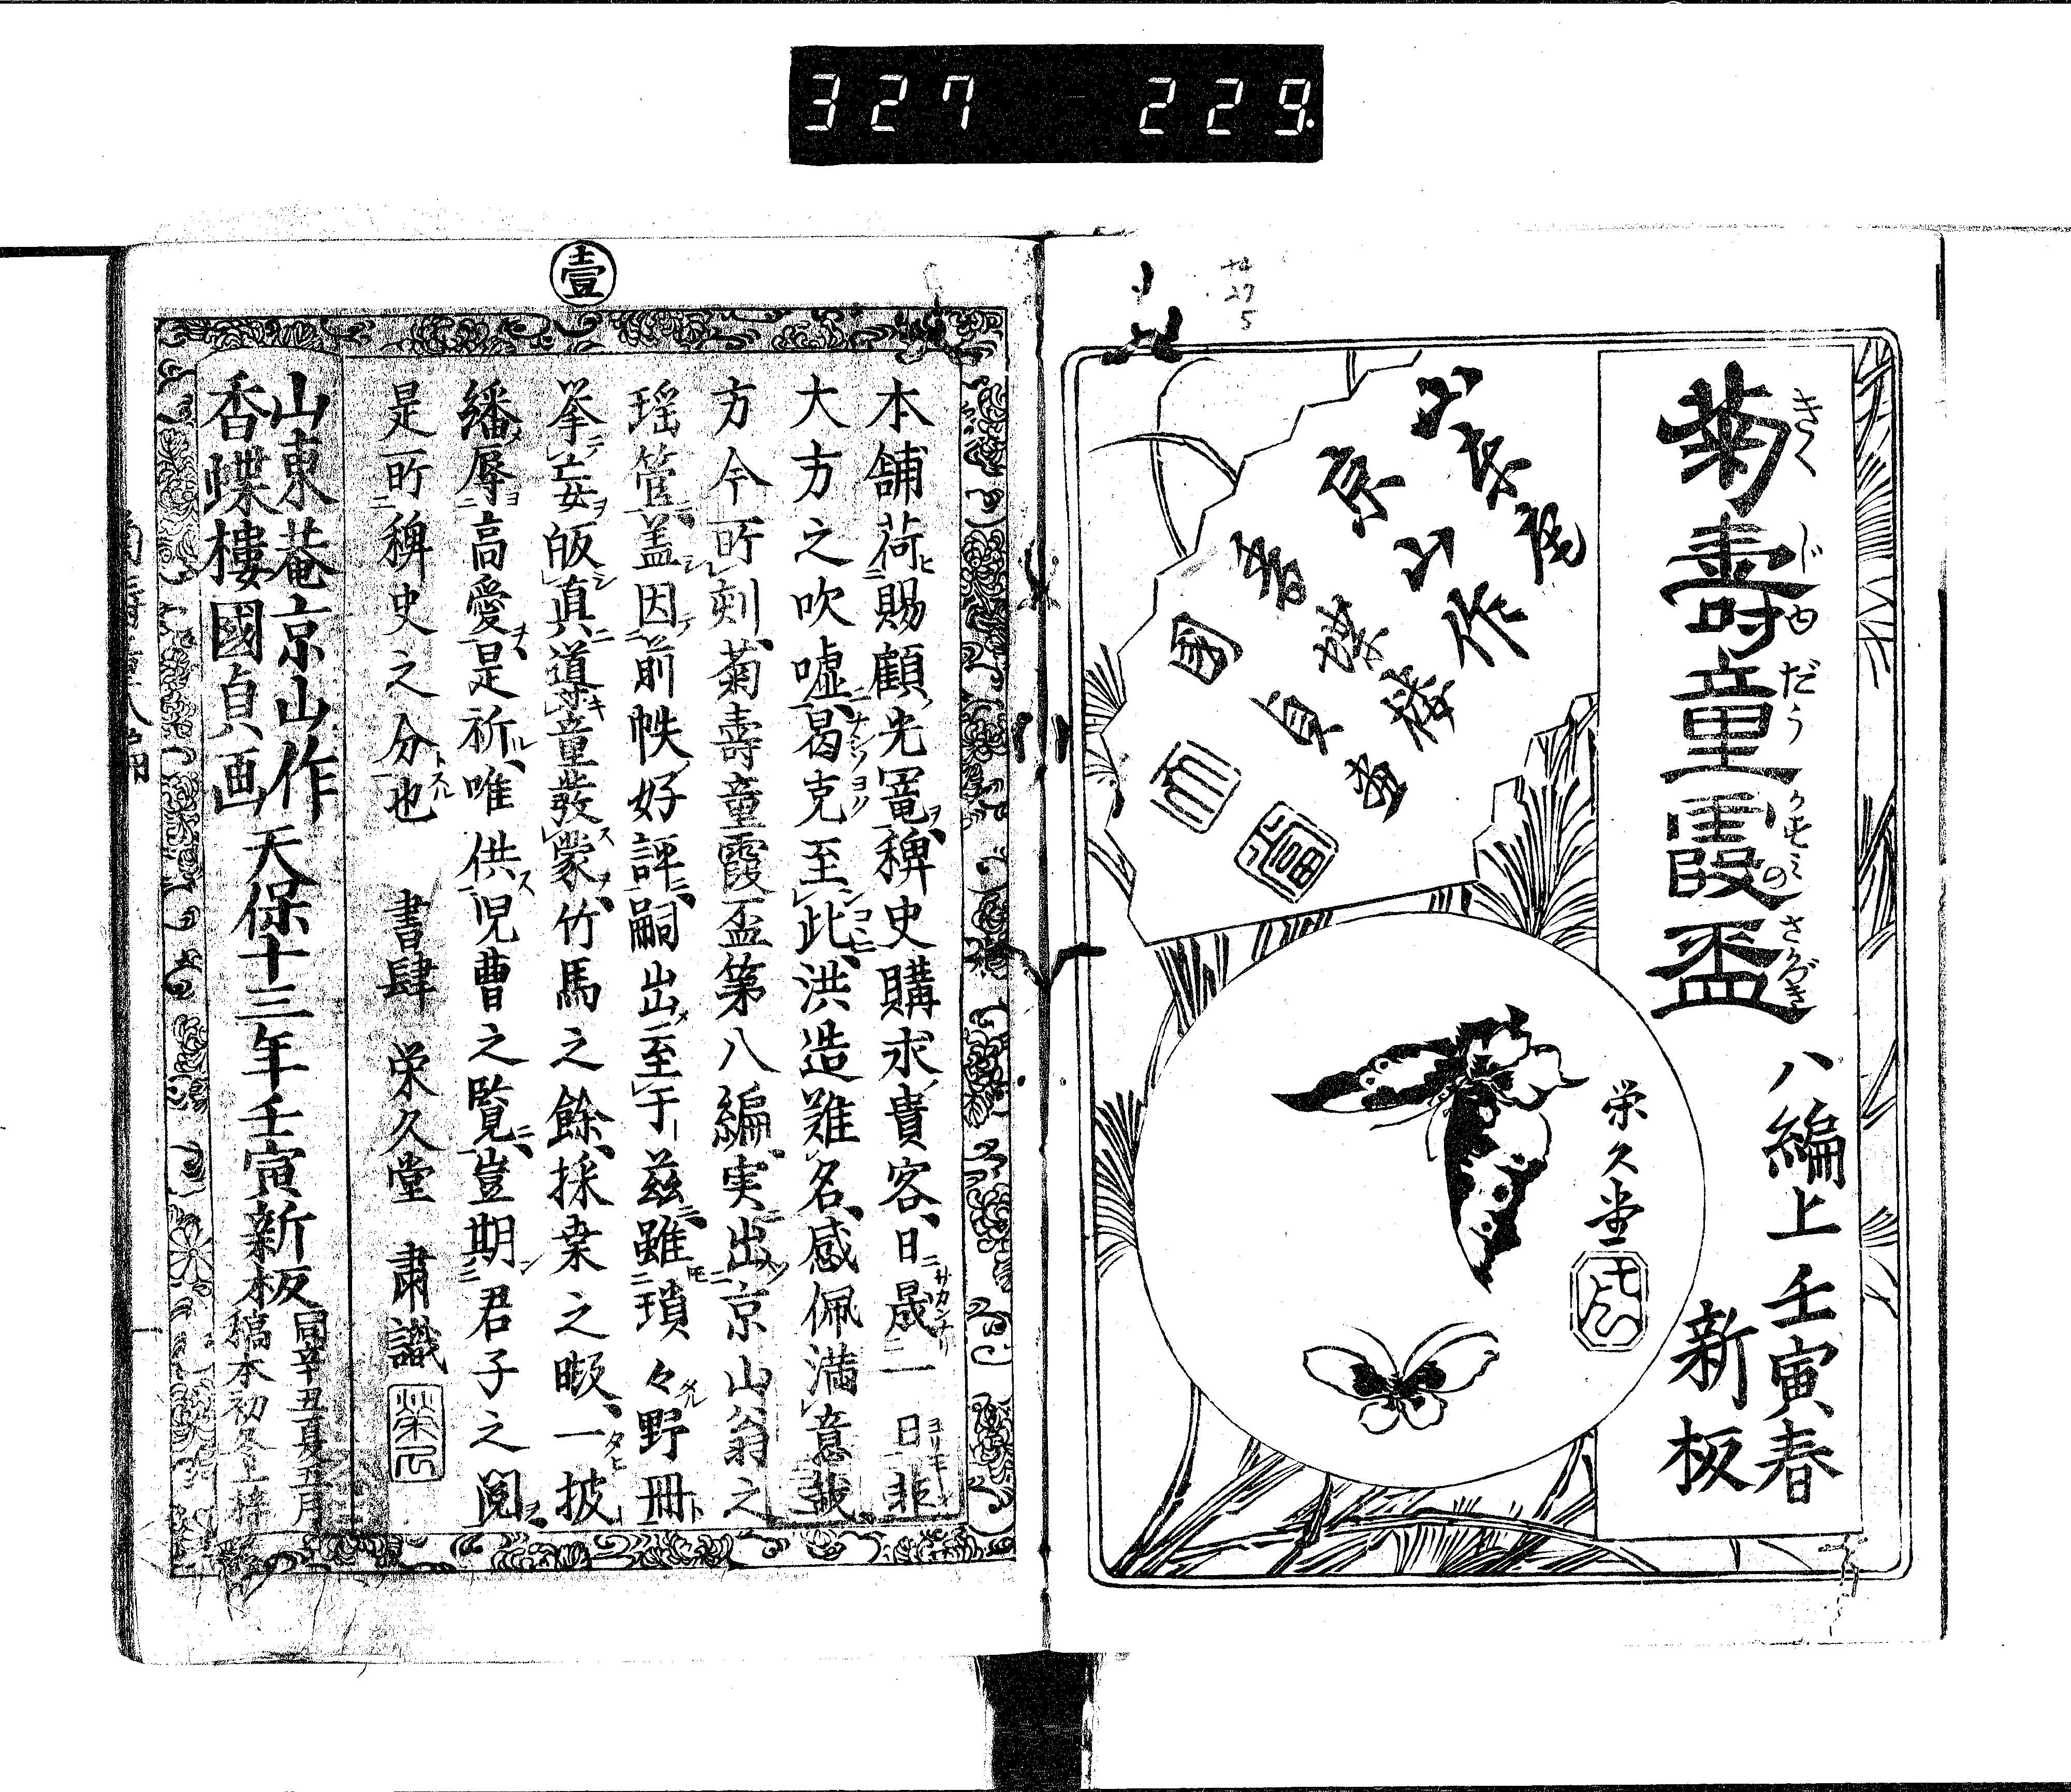 327 229
菊壽童霞盃
きく じゆ だう かすみの さかづき
八編上
壬寅春
新板
山東庵
京山作
香蝶樓
國貞画
栄久堂
壹
本舗荷賜顧先寵稗史購求貴客日晟一日非
大方之吹嘘曷克至此洪造難名感佩満意哉
方今所刻菊壽童霞盃第八編実出京山翁之
瑶管盖因前帙好評嗣出至于茲雖瑣々野冊
挙妄皈真道導童發蒙竹馬之餘採桒之暇一披
繙辱高愛是祈唯供児曹之覧豈期君子之閲
是所稗史之分也
書肆 栄久堂 肅識
山東菴京山作
香蝶樓國貞画
天保十三年壬寅新板
同辛丑夏五月
稿本初冬上梓